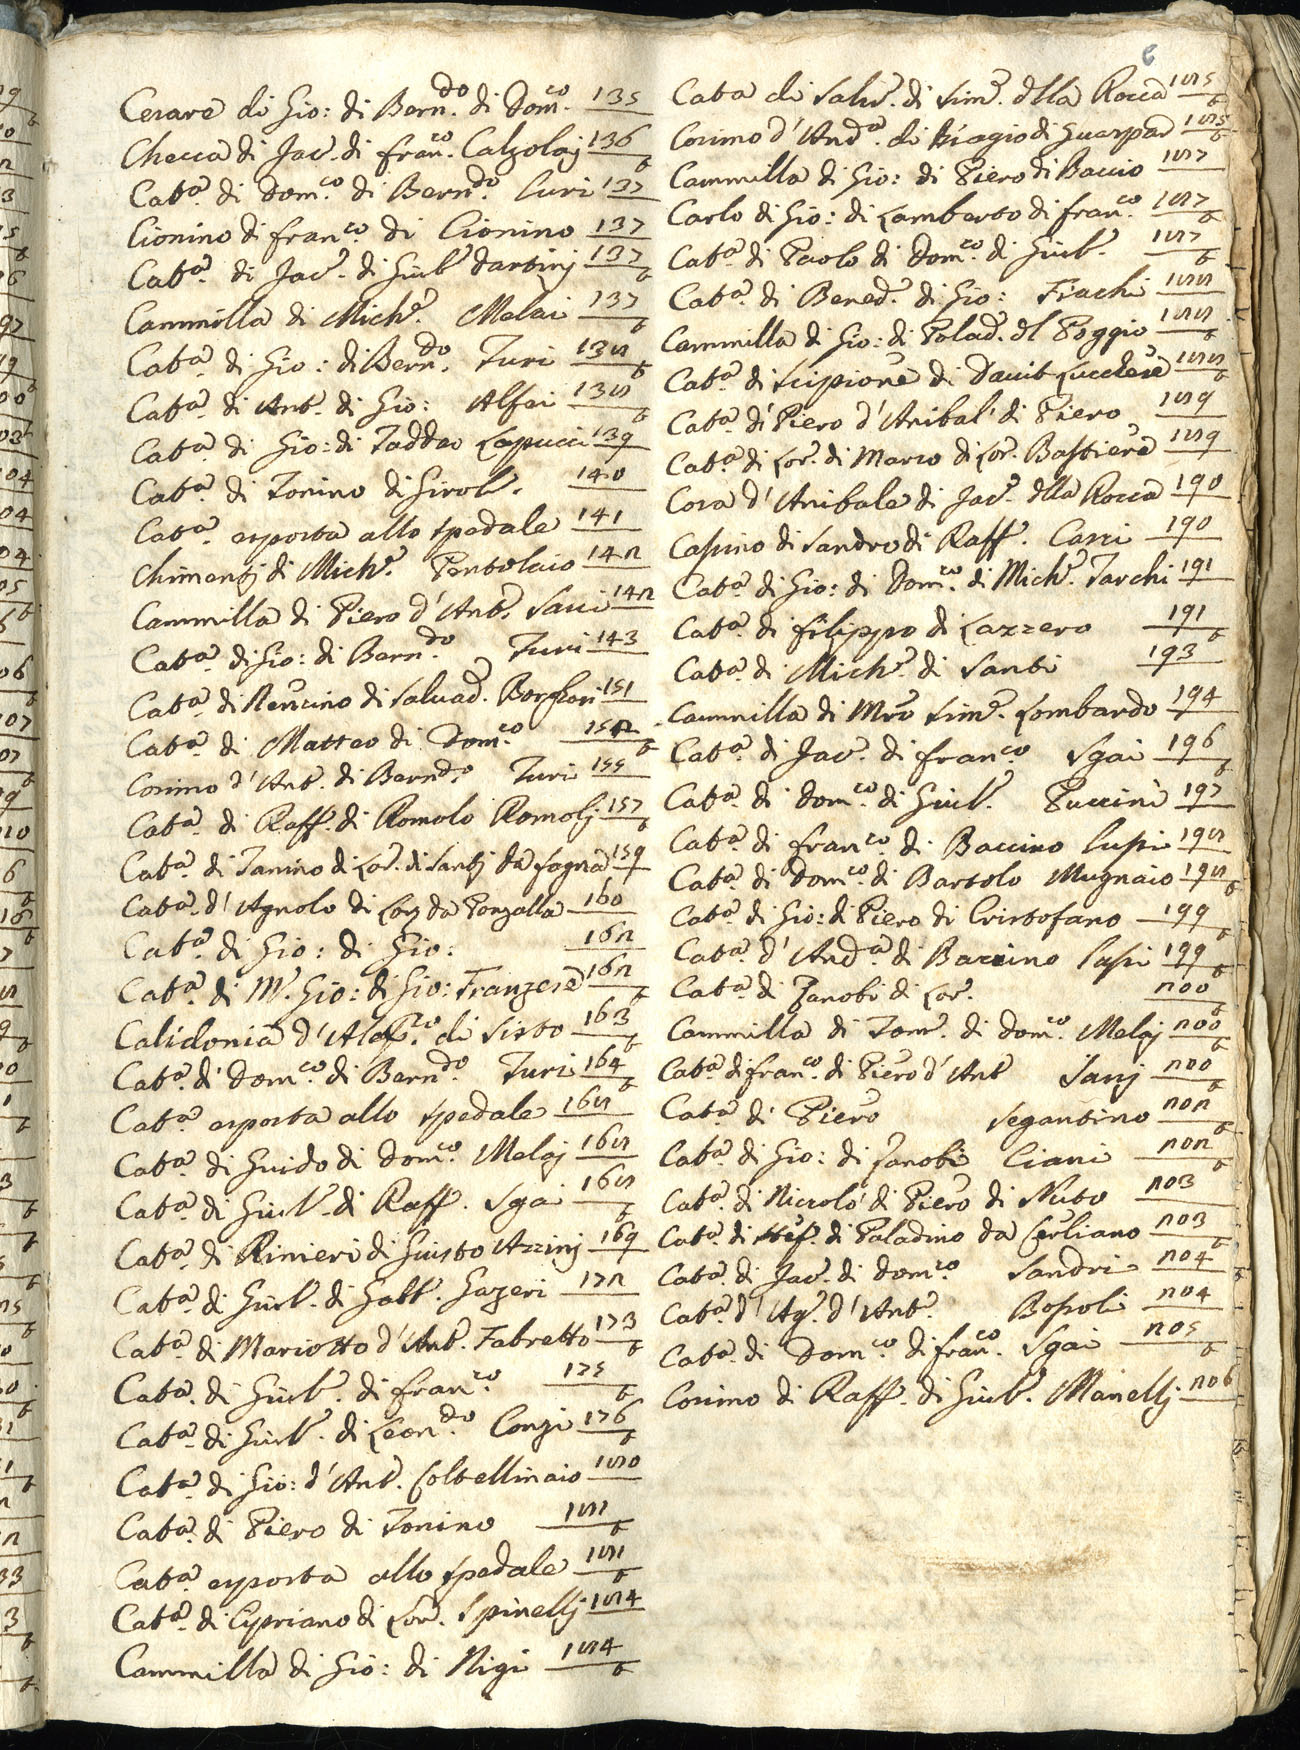 6
Cesare di Gio: di Bern.do di Dom.co 135
Checca di Jac.o di fran.co Calzolaj 136 t
Cat.a di Dom.co di Bern.do Turi 137
Cionino di fran.co di Cionino 137
Cat.a di Jac.o di Giul.o dartinj 137 t
Cammilla di Mich.e Melai 137 t
Cat.a di Gio: di Bern.do Turi 138 t
Cat.a di Ant.o di Gio: Alfei 138 t
Cat.a di Gio: di Taddeo Lapucci 139
Cat.a di Tonino di Girol.o 140
Cat.a esposta allo spedale 141
Chimentj di Mich.e Pentolaio 142
Cammilla di Piero d'Ant.o Sani 142
Cat.a di Gio: di Bern.do Turi 143
Cat.a di Rencino di Salvad.e Borghori 151
Cat.a di Matteo di Dom.co 152 t
Cosimo d'Ant.o di Bern.do Turi 155
Cat.a di Raff.o di Romolo Romolj 157 t
Cat.a di Tonino di Lor.o di Santj da Fagna 159
Cat.a d'Agnolo di Lor.o da Ponzalla 160
Cat.a di Gio: di Gio: 162
Cat.a di M. Gio: di Gio: Franzese 162 t
Calidonia d' di Sisto 163 t
Cat.a di dom.co di Bern.do Turi 164 t
Cat.a esposta allo spedale 168
Cat.a di Guido di dom.co Melaj 168
Cat.a di Giul.o di Raff.o Sgai 168 t
Cat.a di Rinieri di Giusto Azzinj 169
Cat.a di Giul.o di Gabb.o Gazeri 172
Cat.a di Mariotto d'Ant.o Fabretto 173 t
Cat.a di Giul.o di fran.co 175 t
Cat.a di Giul.o di Leon.do Conzi 176 t
Cat.a di Gio: d'Ant.o Coltellinaio 180
Cat.a di Piero di Tonino 181 t
Cat.a esposta allo spedale 181 t
Cat.a di Cipriano di Lor.o Spinellj 184
Cammilla di Gio: di Nigi 184 t
Cat.a di Salv.e di Sim.e della Rocca 185 t
Cosimo d'And.a di Biagio di Guaspar 185 t
Cammilla di Gio: di Piero di Baccio 187
Carlo di Gio: di Lamberto di fran.co 187 t
Cat.a di Paolo di Dom.co di Giul.o 187 t
Cat.a di Bened.o di Gio: Fiachi 188
Cammilla di Gio: di Palad.o del Poggio 188 t
Cat.a di Scipione di Davit Lucchese 188 t
Cat.a di Piero d'Anibal' di Piero 189
Cat.a di Lor.o di Marco di Lor.o Bastiere 189
Cosa d'Anibale di Jac.o della Rocca 190
Caspino di Sandro di Raff.o Casci 190
Cat.a di Gio: di Dom.co di Mich.e Tarchi 191
Cat.a di filippo di Lazzero 191 t
Cat.a di Mich.e di Santi 193
Cammilla di Mro Sim.e Lombardo 194
Cat.a di Jac.o di fran.co Sgai 196 t
Cat.a di dom.co di Giul.o Puccini 197
Cat.a di fran.co di Baccino Lupi 198
Cat.a di dom.co di Bartolo Mugnaio 198 t
Cat.a di Gio: di Piero di Cristofano 199 t
Cat.a d'And.a di Baccino Lupi 199 t
Cat.a di Zanobi di Lor.o 200 t
Cammilla di Tom.o di dom.co Melaj 200 t
Cat.a di fran.co di Piero d'Ant.o Sanj 200 t
Cat.a di Piero Segantino 202 t
Cat.a di Gio: di Zanobi Ciani 202 t
Cat.a di Niccolò di Piero di Nuto 203
Cat.a di Stef.o di Paladino da Cerliano 203 t
Cat.a di Jac.o di dom.co Sandri 204 t
Cat.a d'Ag.o d'Ant.o Bopoli 204
Cat.a di Dom.co di fran.co Sgai 205 t
Cosimo di Raff.o di Giul.o Manellj 206